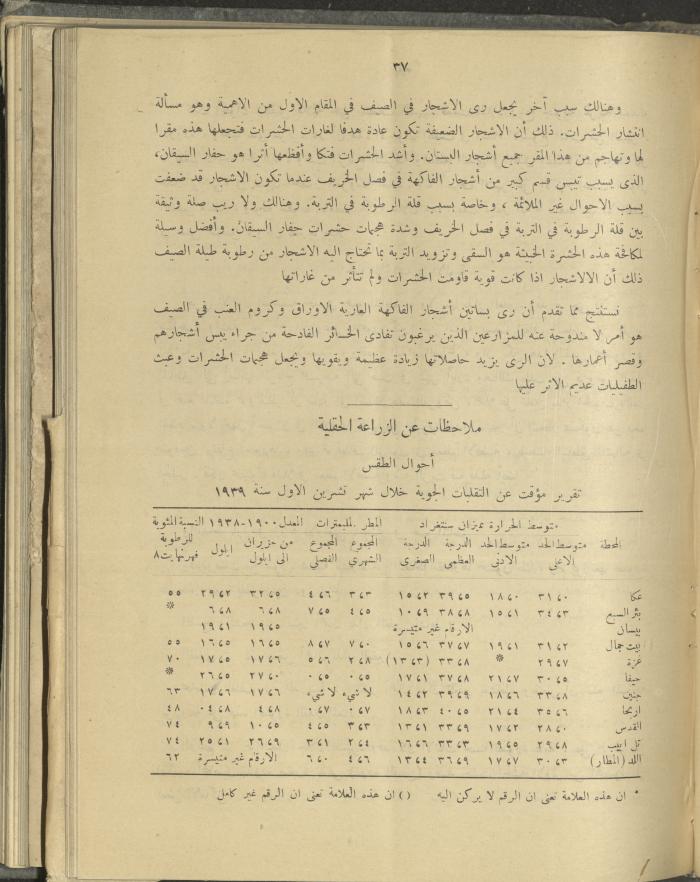 ٣٧
وهنالك سبب آخر يجعل رى الاشجار في الصيف في المقام الاول من الاهمية وهو مسألة
انتشار الحشرات. ذلك أن الاشجار الضعيفة تكون عادة هدفا لغارات الحشرات فتجعلها هذه مقرا
لها وتهاجم من هذا المقر جميع أشجار البستان. وأشد الحشرات فتكا وأفظعها أثرا هو حفار السيقان،
الذى يسبب تيبس قسم كبير من أشجار الفاكهة في فصل الخريف عندما تكون الاشجار قد ضعفت
بسبب الاحوال غير الملائمة ، وخاصة بسبب قلة الرطوبة في التربة. وهنالك ولا ريب صلة وثيقة
بين قلة الرطوبة في التربة في فصل الخريف وشدة هجمات حشرات حفار السيقان. وأفضل وسيلة
لمكافحة هذه الحشرة الخبيثة هو السقى وتزويد التربة بما تحتاج اليه الاشجار من رطوبة طيلة الصيف
ذلك أن الالاشجار اذا كانت قوية قاومت الحشرات ولم تتأثر من غاراتها
نستنتج مما تقدم أن رى بساتين أشجار الفاكهة العارية الاوراق وكروم العنب في الصيف
هو أمر لا مندوحة عنه للمزارعين الذين يرغبون تفادى الخسائر الفادحة من جراء يبس أشجارهم
وقصر أعمارها . لان الرى يزيد حاصلاتها زيادة عظيمة ويقويها ويجعل هجمات الحشرات وعبث
الطفيليات عديم الاثر عليها
ملاحظات عن الزراعة الحقلية
أحوال الطقس
تقرير مؤقت عن التقلبات الجوية خلال شهر تشرين الاول سنة ١٩٣٩
متوسط الحرارة بميزان سنتغراد المطر بالمليمترات المعدل ١٩٠٠-١٩٣٨ النسبة المئوية
المحطة متوسط الحد الاعلى متوسط الحد الادنى الدرجة العظمى الدرجة الصغرى المجموع الشهرى المجموع الفصلي من حزيران الى ايلول ايلول للرطوبة
عكا ٣١،٠ ١٨،٠ ٣٩،٥ ١٥،٢ ٣،٣ ٤،٦ ٣٢،٥ ٢٩،٢ ٥٥
بئر السبع ٣٤،٣ ١٥،١ ٣٨،٨ ١٠،٩ ٤،٥ ٧،٥ ٦،٨ ٦،٨ *
بيسان الارقام غير متيسرة ١٩،٥ ١٩،١
بيت جمال ٣١،٢ ١٩،١ ٣٧،٧ ١٥،٦ ٧،٠ ٨،٧ ١٦،٥ ١٦،٥ ٥٥
غزة ٢٩،٧ * ٣٣،٨ (١٣،٣) ٢،٨ ٥،٦ ١٧،٦ ١٧،٥ ٧٠
حيفا ٣٠،٥ ٢١،٧ ٣٧،٨ ١٧،١ ٠،٥ ٠،٥ ٢٧،٠ ٢٦،٥ *
جنين ٣٣،٨ ١٨،٦ ٣٩،٩ ١٤،٢ لا شيء لا شيء ١٧،٦ ١٧،٦ ٦٣
اريحا ٣٥،٦ ٢١،٤ ٤٠،٥ ١٨،٣ ٠،٧ ٠،٧ ٤،٨ ٠٤،٨ ٤٨
القدس ٢٨،٠ ١٧،٢ ٣٣،٩ ١٣،١ ٣،٣ ٤،٥ ١٠،٥ ٩،٩ ٧٤
تل ابيب ٢٩،٨ ١٩،٥ ٣٣،٣ ١٦،٦ ٢،٤ ٣،١ ٢٦،٩ ٢٥،١ ٧٤
اللد (المطار) ٣٠،٣ ١٧،٧ ٣٦،٩ ١٣،٤ ٤،٦ ٦،٠ الارقام غير متيسرة ٦٢
* ان هذه العلامة تعنى ان الرقم لا يركن اليه () ان هذه العلامة تعنى ان الرقم غير كامل